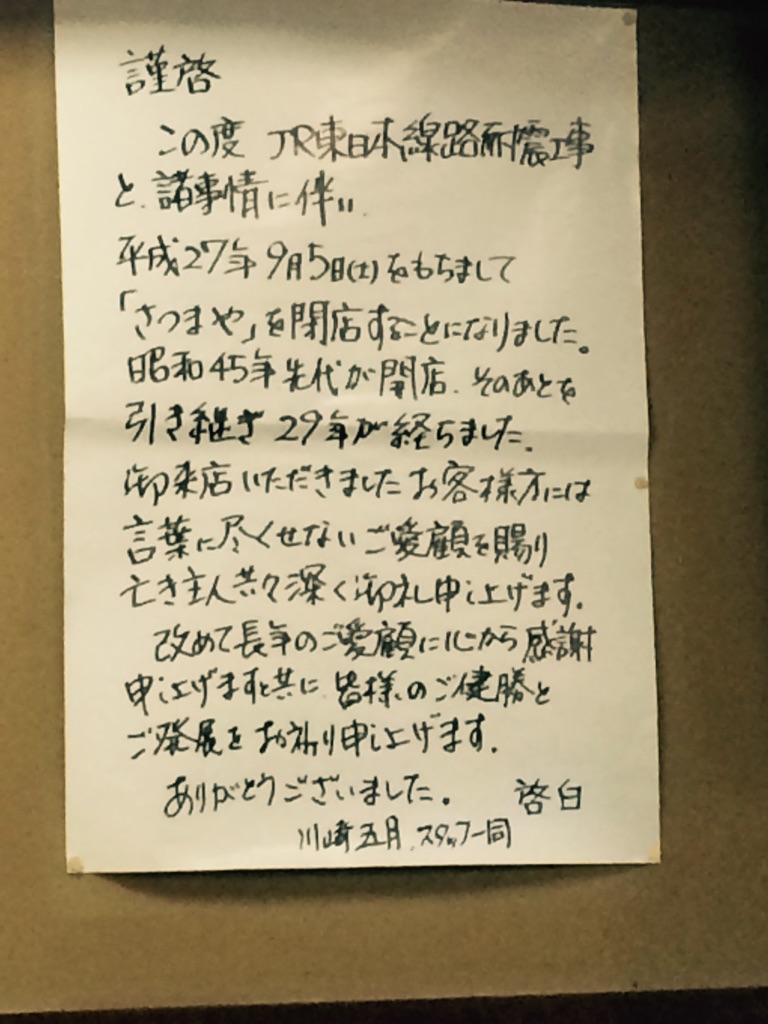 謹啓
この度 JR東日本線路耐震工事
と、諸事情に伴い、
平成27年9月5日(土)をもちまして
「さつまや」を閉店することになりました。
昭和45年先代が開店、そのあとを
引き継ぎ29年が経ちました。
御来店いただきましたお客様方には
言葉に尽くせないご愛顧を賜り
亡き主人共々深く御礼申し上げます。
改めて長年のご愛顧に心から感謝
申し上げますと共に皆様のご健勝と
ご発展をお祈り申し上げます。
ありがとうございました。 啓白
川崎五月、スタッフ一同